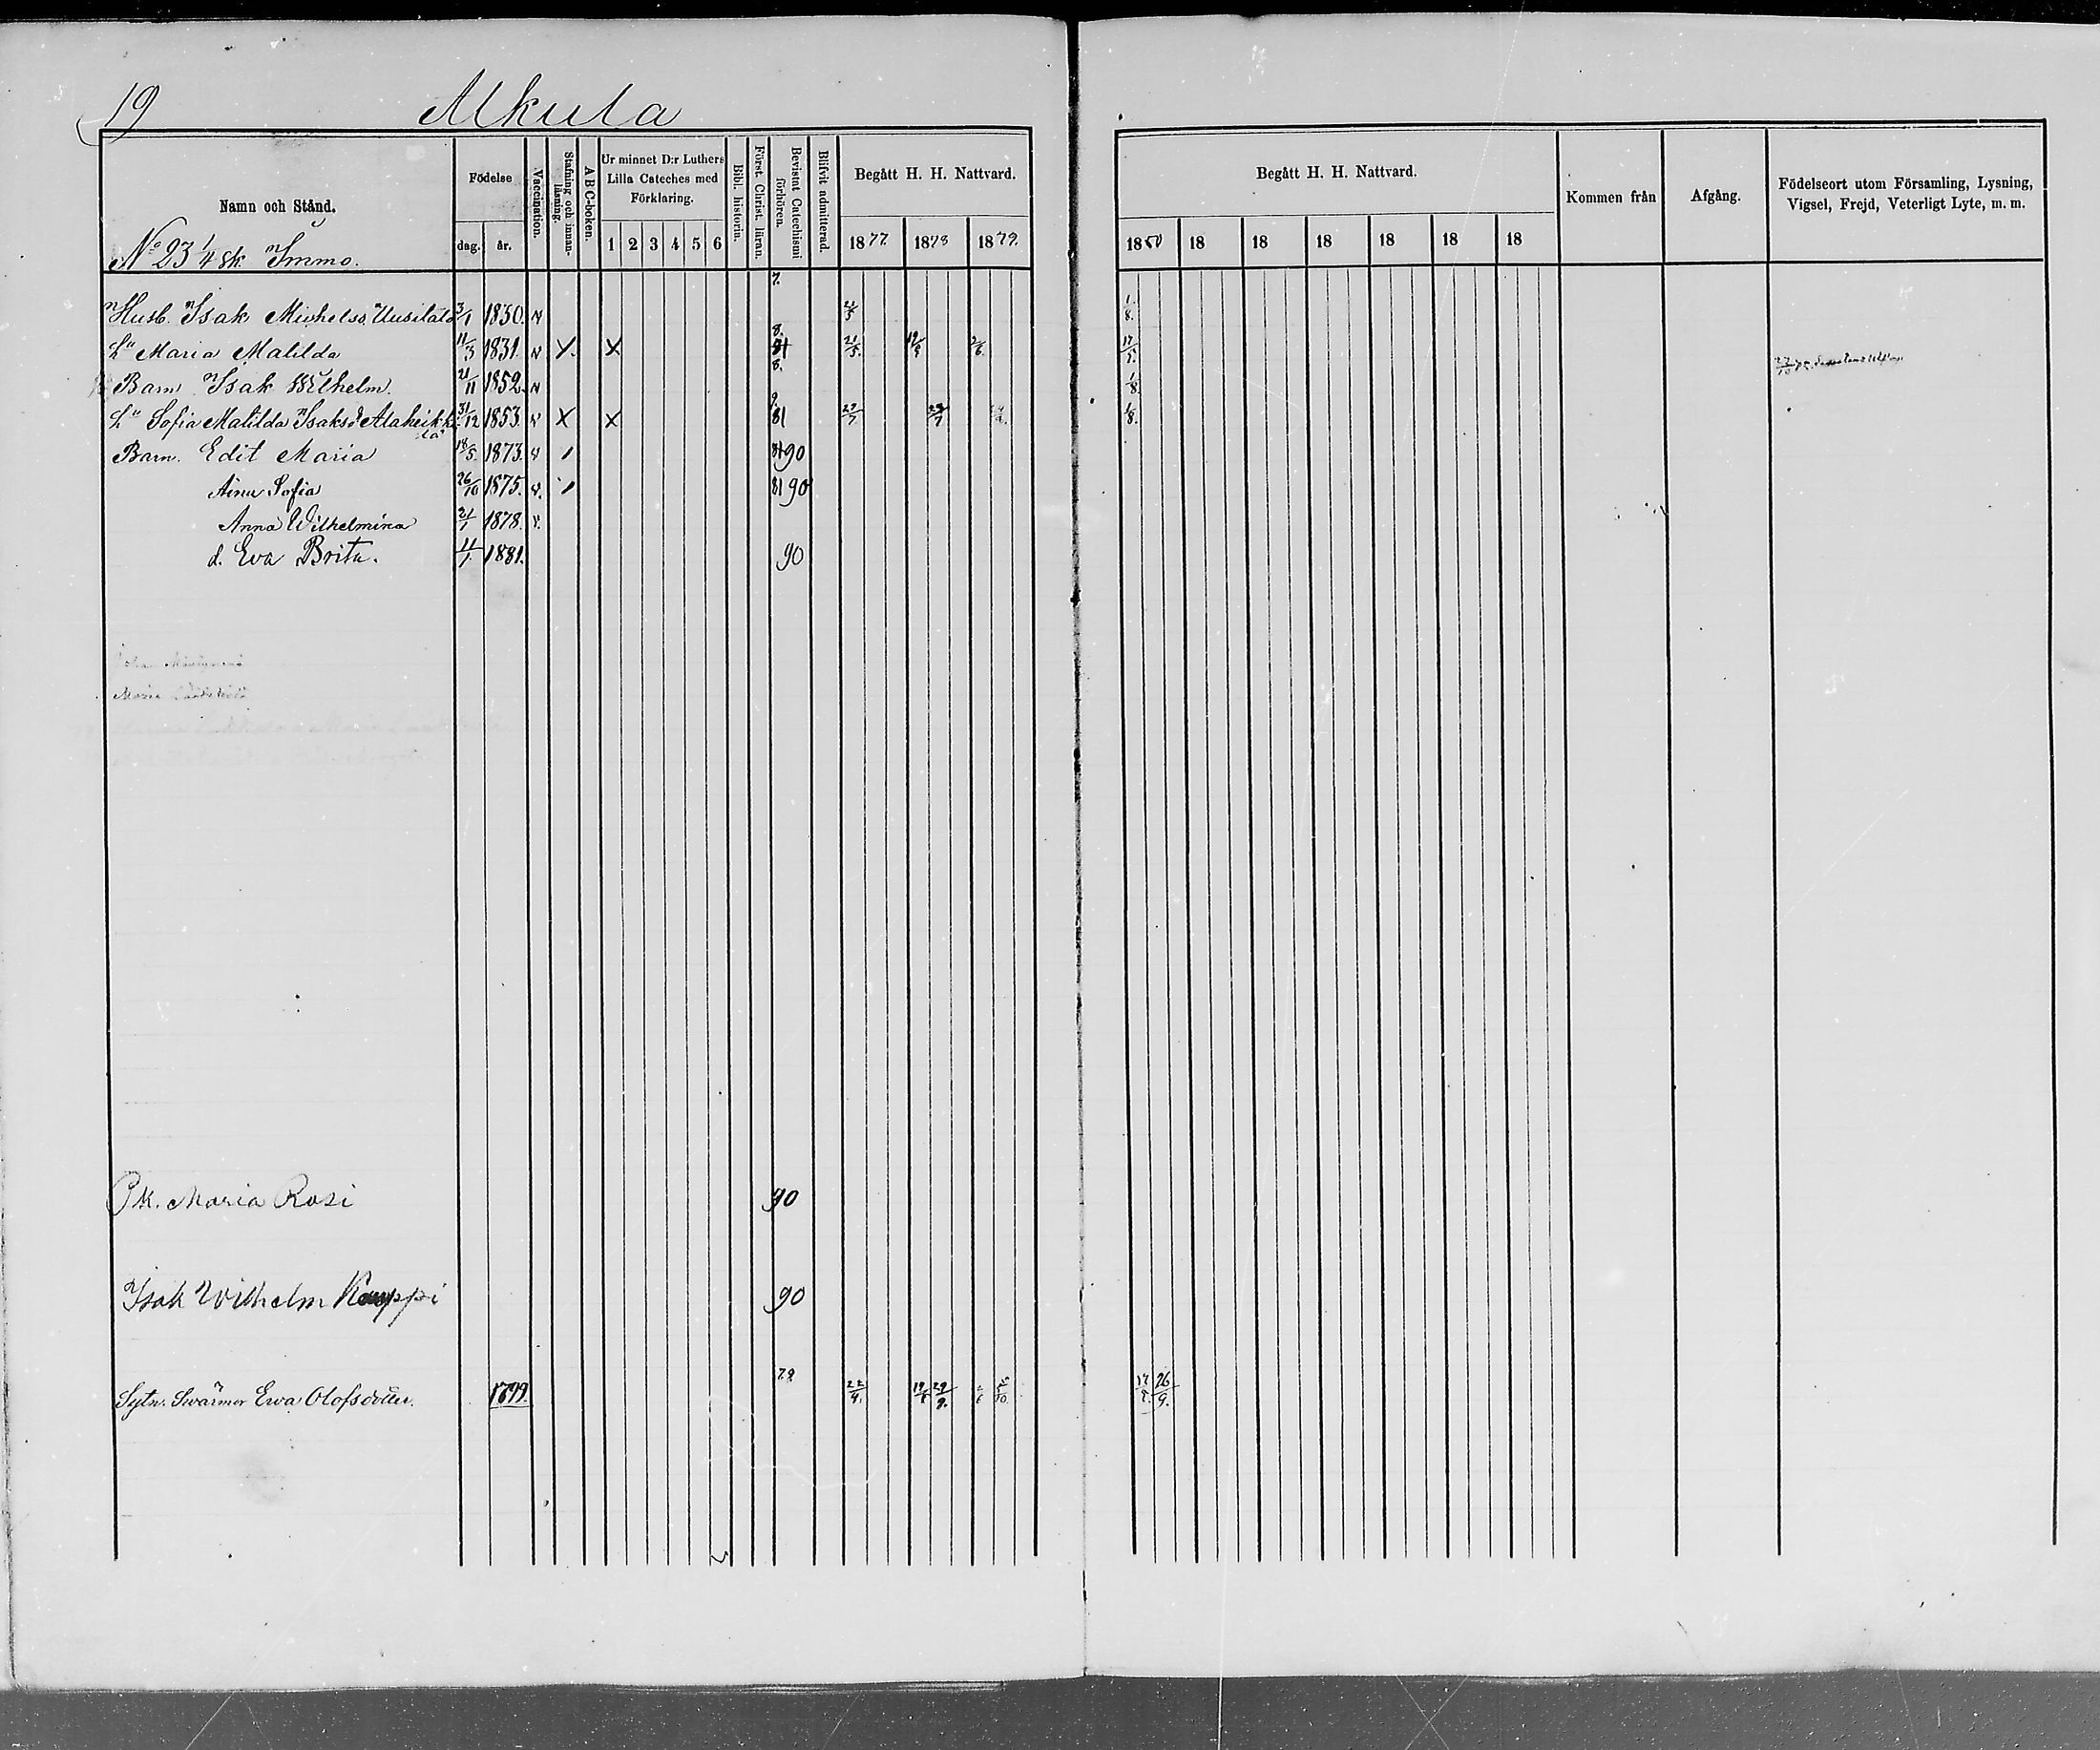 19
Alkula
Namn och Stånd.
Födelse
dag.
år.
Vaccination.
Stafning och innanläsning.
A B C-boken.
Ur minnet D:r Luthers Lilla Cateches med Förklaring.
1 2 3 4 5 6
Bibl. historia.
Först. Christ. läran.
Bevistat Catechismi förhören.
Blifvit admitterad.
Begått H. H. Nattvard.
1877. 1878 1879.
Begått H. H. Nattvard.
1880 18 18 18 18 18 18
Kommen från
Afgång.
Födelseort utom Församling, Lysning, Vigsel, Frejd, Veterligt Lyte, m. m.
No 23 1/4 sk. Immo.
7.
Husb. Isak Michelss. Uusitalo 3/1 1830. 1/8.
8.
Hu Maria Matilda 11/3 1831. X 81 21/5. 19/5 2/6. 17/5.
8.
Barn Isak Wilhelm. 21/11 1852. 1/8.
9.
Hu Sofia Matilda Isaksd Alaheikkilä 31/12 1853. X X 81 29/9 1/8.
Barn. Edit Maria 18/5. 1873. 81 90
Aina Sofia 26/10 1875. 81 90
Anna Wilhelmina 21/1 1878.
d. Eva Brita. 11/1. 1881. 90
Maria
Pk. Maria Rosi 90
Isak Wilhelm Kauppi 90
79
Sytn. Swärmor Ewa Olofsdotter. 1799. 22/9. 19/5 29/9. 5/10. 17/5. 26/9.